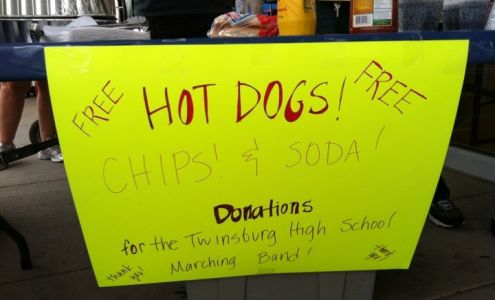 FREE
HOT DOGS!
FREE
CHIPS! & SODA!
Donations
for the Twinsburg High School
Marching Band!
thank you!
thank you!